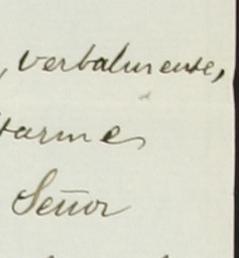 , verbalmente,
tarme
Señor